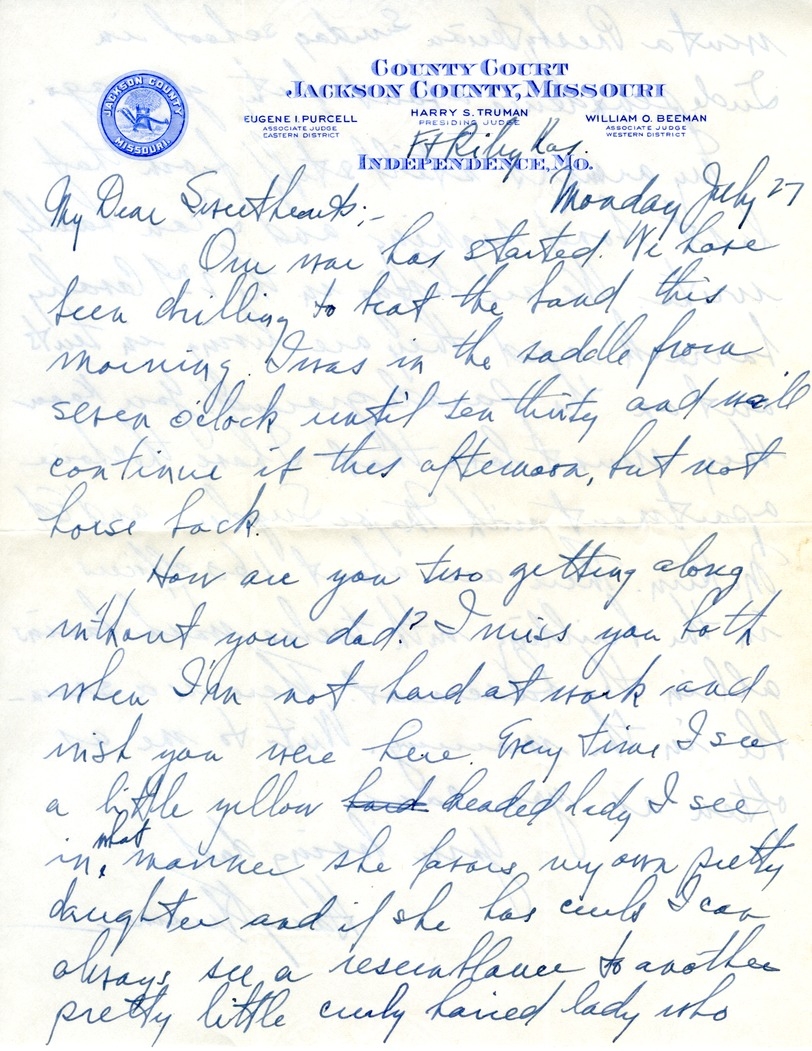 COUNTY COURT
JACKSON COUNTY, MISSOURI
JACKSON COUNTY
MISSOURI
EUGENE I. PURCELL
ASSOCIATE JUDGE
EASTERN DISTRICT
HARRY S. TRUMAN
PRESIDING JUDGE
WILLIAM O. BEEMAN
ASSOCIATE JUDGE
WESTERN DISTRICT
Ft Riley Kas.
INDEPENDENCE, MO.
Monday July 27
My Dear Sweethearts;-
Our war has started. We have
been drilling to beat the band this
morning. I was in the saddle from
seven o'clock until ten thirty and will
continue it this afternoon, but not
horse back.
How are you two getting along
without your dad? I miss you both
when I'm not hard at work and
wish you were here. Every time I see
a little yellow haid headed lady I see
in what manner she favors my own pretty
daughter and if she has curls I can
always see a resemblance to another
pretty little curly haired lady who